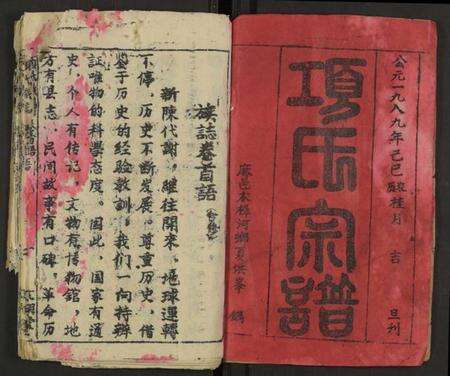 公元一九八九年己巳歲桂月 吉 旦刊
項氏宗譜
麻邑木梓河鄉夏供峯
族誌卷首語
新陳代謝，繼往開來，地球運轉
不停，历史不断发展。尊重历史，借
鉴于历史的经验教訓，我们一向持辨
証唯物的科學态度。因此，国家有通
史，个人有传记，文物有博物館，地
方有县志，民间故事有口碑。革命历